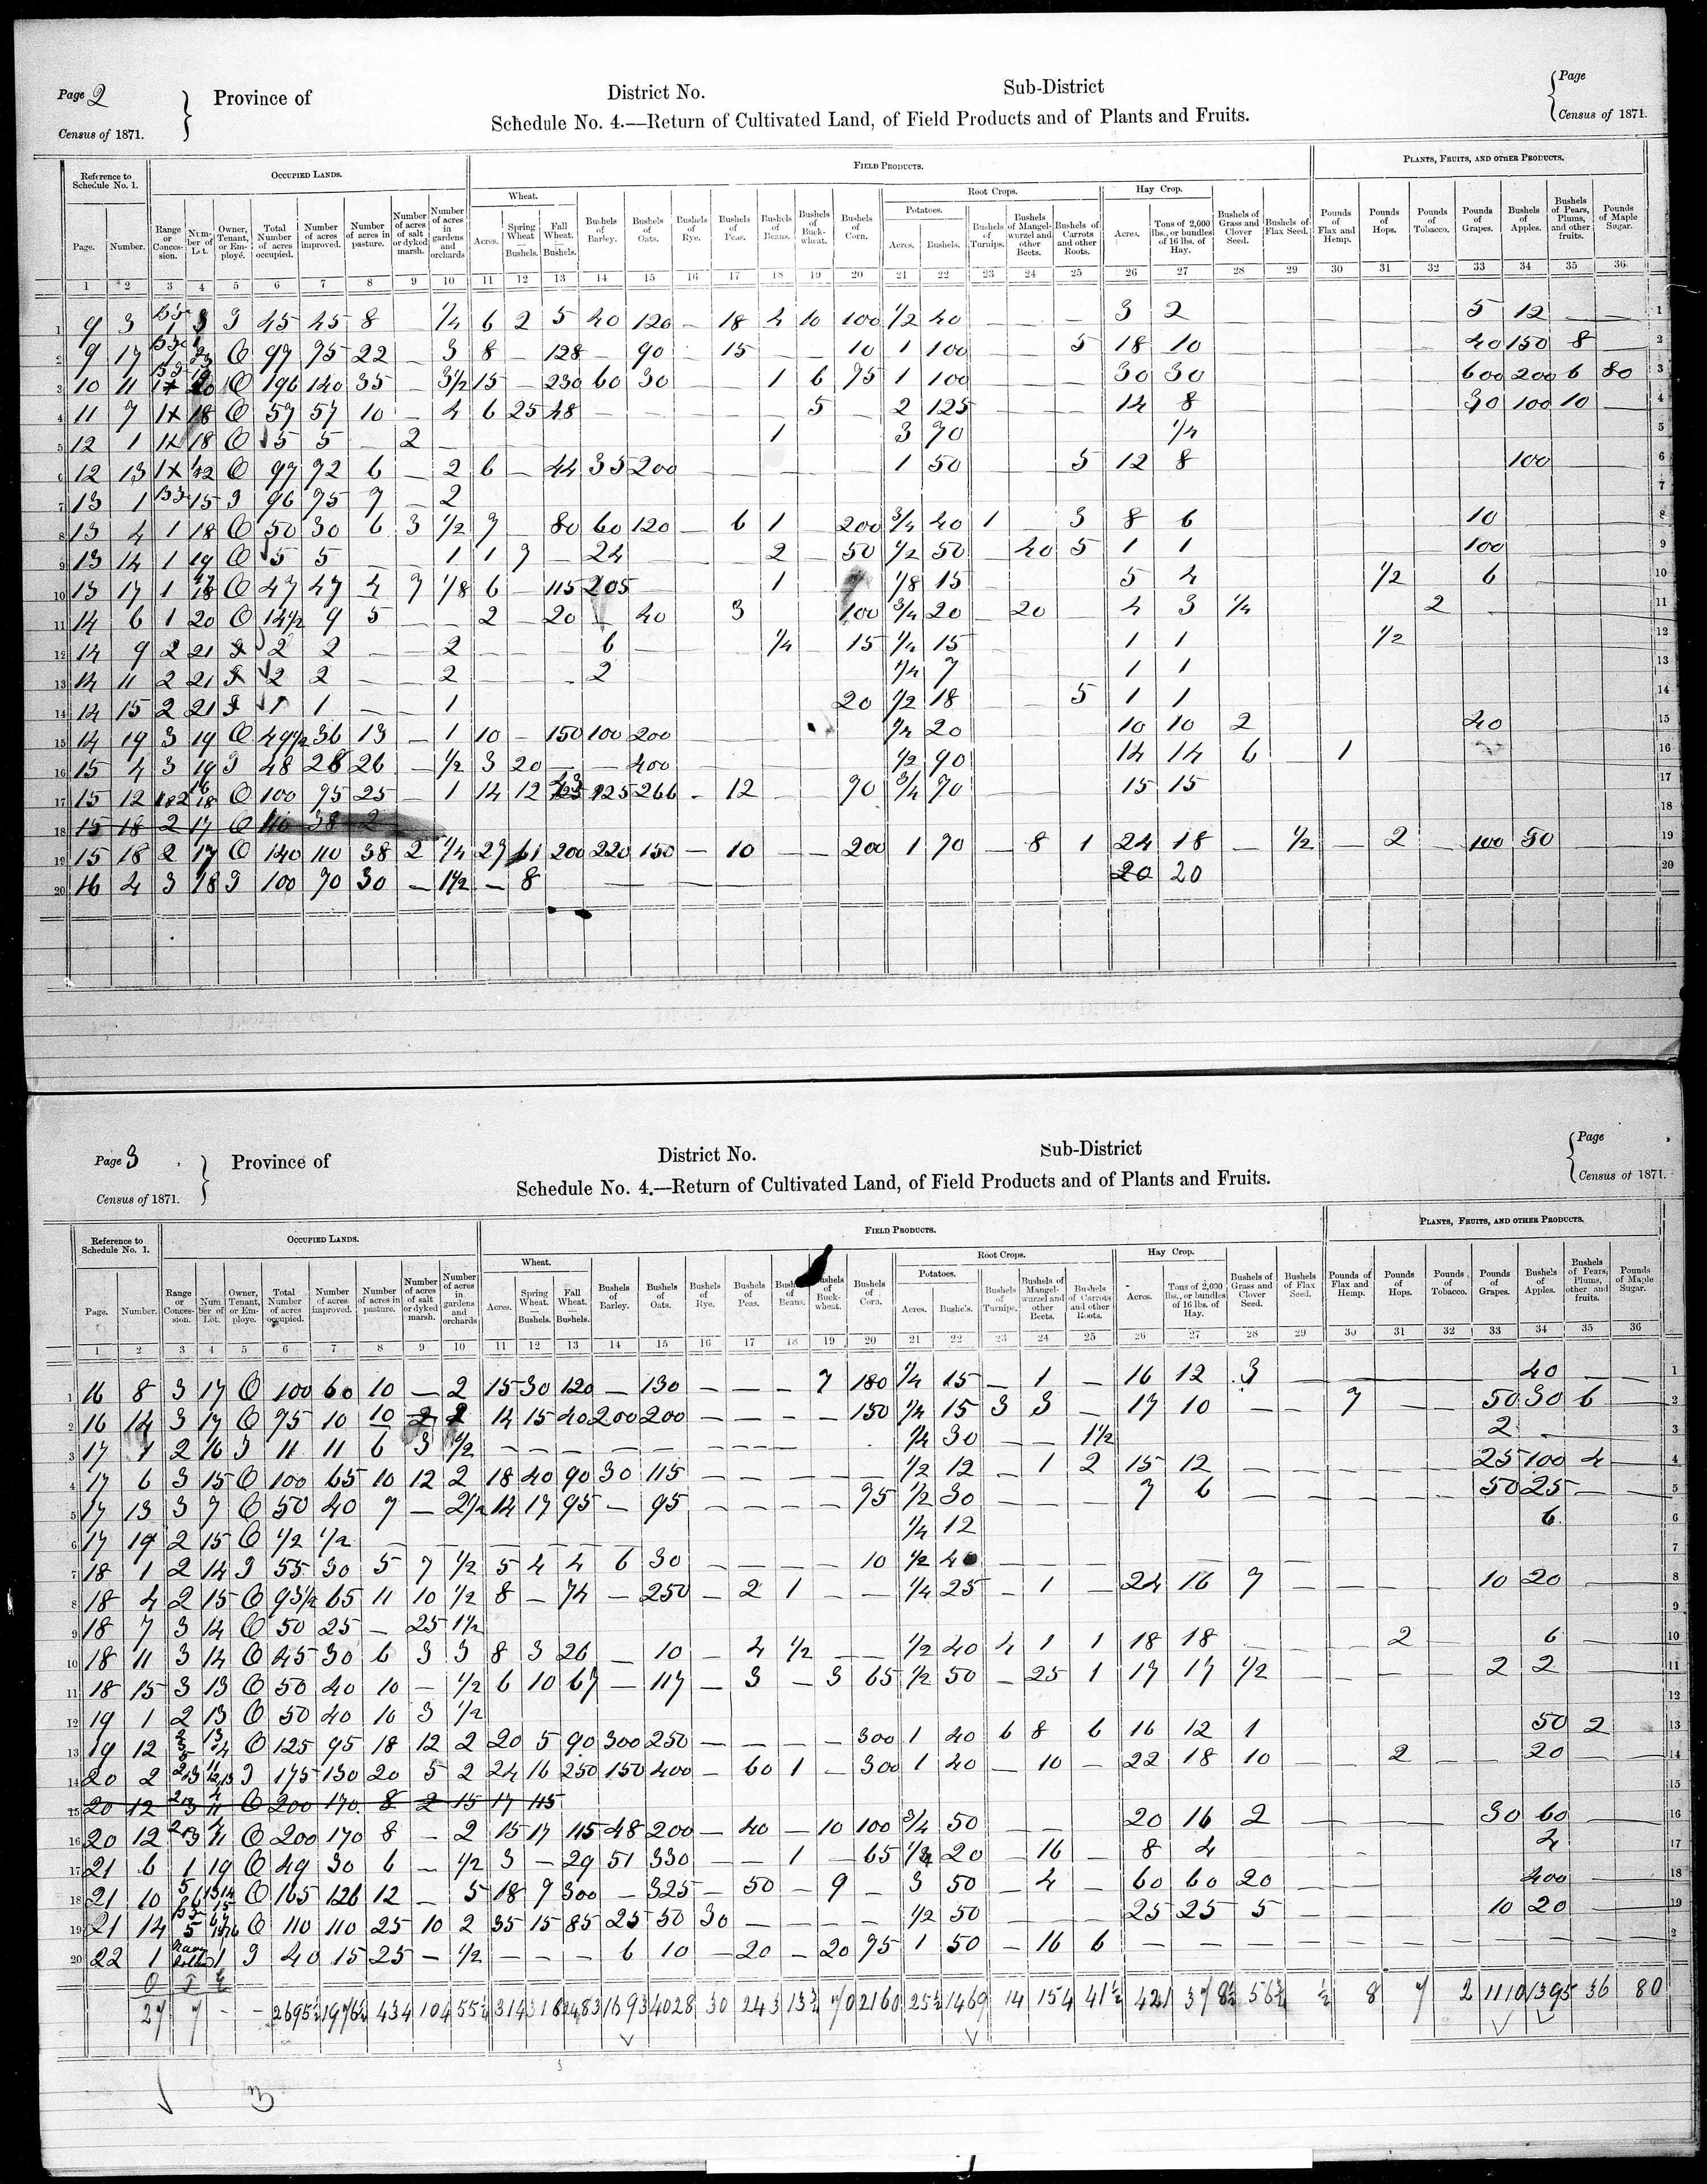 Page 2
Census of 1871.
Province of
District No.
Sub-District
Page
Census of 1871.
Schedule No. 4.—Return of Cultivated Land, of Field Products and of Plants and Fruits.
Reference to Schedule No. 1.
OCCUPIED LANDS.
FIELD PRODUCTS.
PLANTS, FRUITS, AND OTHER PRODUCTS.
Wheat.
Root Crops.
Hay Crop.
Potatoes.
Page. Number. Range or Conces- sion. Num- ber of Lot. Owner, Tenant, or Em- ployé. Total Number of acres occupied. Number of acres improved. Number of acres in pasture. Number of acres of salt or dyked marsh. Number of acres in gardens and orchards Acres. Spring Wheat — Bushels. Fall Wheat. — Bushels. Bushels of Barley. Bushels of Oats. Bushels of Rye. Bushels of Peas. Bushels of Beans. Bushels of Buck- wheat. Bushels of Corn. Acres. Bushels. Bushels of Turnips. Bushels of Mangel- wurzel and other Beets. Bushels of Carrots and other Roots. Acres. Tons of 2,000 lbs., or bundles of 16 lbs. of Hay. Bushels of Grass and Clover Seed. Bushels of Flax Seed. Pounds of Flax and Hemp. Pounds of Hops. Pounds of Tobacco. Pounds of Grapes. Bushels of Apples. Bushels of Pears, Plums, and other fruits. Pounds of Maple Sugar.
1 2 3 4 5 6 7 8 9 10 11 12 13 14 15 16 17 18 19 20 21 22 23 24 25 26 27 28 29 30 31 32 33 34 35 36
1 9 3 3 45 45 8 1/4 6 2 5 40 120 — 18 4 10 100 1/2 40 — — — 3 2 5 12 — — 1
2 9 17 O 97 75 22 — 3 8 — 128 — 90 — 15 — — 10 1 100 5 18 10 40 150 8 — 2
3 10 11 O 196 140 35 — 3 1/2 15 — 230 60 30 — — 1 6 75 1 100 30 30 600 200 6 80 3
4 11 7 1x 18 O 57 57 10 — 4 6 25 48 — — — — — 5 — 2 125 — — — 14 8 30 100 10 — 4
5 12 1 1x 18 O 5 5 — 2 — 1 3 70 1/4 5
6 12 13 1x O 97 72 6 — 2 6 — 44 35 200 — — — — — 1 50 5 12 8 100 6
7 13 1 15 3 96 75 7 — 2 7
8 13 4 1 18 O 50 30 6 3 1/2 7 80 60 120 — 6 1 — 200 3/4 40 1 — 3 8 6 10 8
9 13 14 1 19 O 5 5 — — 1 1 7 — 24 2 — 50 1/2 50 — 40 5 1 1 100 9
10 13 17 1 O 47 47 4 7 1/8 6 — 115 205 1 1/8 15 5 4 1/2 6 10
11 14 6 1 20 O 14 1/2 9 5 — — 2 — 20 40 3 100 3/4 20 — 20 4 3 1/4 2 11
12 14 9 2 21 2 2 — — 2 — — — 6 1/4 — 15 1/4 15 1 1 1/2 12
13 14 11 2 21 2 2 — — 2 2 1/4 7 1 1 13
14 14 15 2 21 1 1 — — 1 20 1/2 18 5 1 1 14
15 14 19 3 19 O 49 1/2 36 13 — 1 10 — 150 100 200 1/4 20 10 10 2 40 15
16 15 4 3 19 3 48 28 26 — 1/2 3 20 — — 400 1/2 90 14 14 6 — 1 16
17 15 12 1&2 O 100 75 25 — 1 14 12 266 — 12 — — 70 3/4 70 15 15 17
18 15 18 2 17 O 110 38 2 18
19 15 18 2 17 O 140 110 38 2 1/4 27 61 200 220 150 — 10 — — 200 1 70 — 8 1 24 18 — 1/2 — 2 — 100 50 19
20 16 4 3 18 3 100 70 30 — 1 1/2 — 8 20 20 20
Page 3
Census of 1871.
Province of
District No.
Sub-District
Page
Census of 1871.
Schedule No. 4.—Return of Cultivated Land, of Field Products and of Plants and Fruits.
Reference to Schedule No. 1.
OCCUPIED LANDS.
FIELD PRODUCTS.
PLANTS, FRUITS, AND OTHER PRODUCTS.
Wheat.
Root Crops.
Hay Crop.
Potatoes.
Page. Number. Range or Conces- sion. Num ber of Lot. Owner, Tenant, or Em- ploye. Total Number of acres occupied. Number of acres improved. Number of acres in pasture. Number of acres of salt or dyked marsh. Number of acres in gardens and orchards Acres. Spring Wheat. — Bushels. Fall Wheat. — Bushels. Bushels of Barley. Bushels of Oats. Bushels of Rye. Bushels of Peas. Bushels of Beans. Bushels of Buck- wheat. Bushels of Corn. Acres. Bushels. Bushels of Turnips. Bushels of Mangel- wurzel and other Beets. Bushels of Carrots and other Roots. Acres. Tons of 2,000 lbs., or bundles of 16 lbs. of Hay. Bushels of Grass and Clover Seed. Bushels of Flax Seed. Pounds of Flax and Hemp. Pounds of Hops. Pounds of Tobacco. Pounds of Grapes. Bushels of Apples. Bushels of Pears, Plums, other and fruits. Pounds of Maple Sugar.
1 2 3 4 5 6 7 8 9 10 11 12 13 14 15 16 17 18 19 20 21 22 23 24 25 26 27 28 29 30 31 32 33 34 35 36
1 16 8 3 17 O 100 60 10 — 2 15 30 120 — 130 — — — 7 180 1/4 15 — 1 — 16 12 3 40 1
2 16 14 3 17 O 75 10 10 14 15 40 200 200 — — — — 150 1/4 15 3 3 — 17 10 — — 7 — — 50 30 6 2
3 17 1 2 16 3 11 11 6 3 1/2 — — — — — 1/4 30 — — 1 1/2 2 3
4 17 6 3 15 O 100 65 10 12 2 18 40 90 30 115 — — — — — 1/2 12 — 1 2 15 12 25 100 4 4
5 17 13 3 7 O 50 40 7 — 2 1/2 14 17 95 — 95 — — — — 75 1/2 30 — — — 7 6 50 25 5
6 17 19 2 15 O 1/2 1/2 1/4 12 6 6
7 18 1 2 14 3 55 30 5 7 1/2 5 4 4 6 30 — — — — 10 1/2 40 7
8 18 4 2 15 O 93 1/2 65 11 10 1/2 8 — 74 — 250 — 2 1 — — 1/4 25 — 1 — 24 16 7 10 20 8
9 18 7 3 14 O 50 25 — 25 1 1/2 9
10 18 11 3 14 O 45 30 6 3 3 8 3 26 — 10 — 4 1/2 — — 1/2 40 4 1 1 18 18 2 6 10
11 18 15 3 13 O 50 40 10 — 1/2 6 10 67 — 117 — 3 — 3 65 1/2 50 — 25 1 17 17 1/2 2 2 11
12 19 1 2 13 O 50 40 10 3 1/2 12
13 19 12 O 125 95 18 12 2 20 5 90 300 250 — — — — 300 1 40 6 8 6 16 12 1 50 2 13
14 20 2 3 175 130 20 5 2 24 16 250 150 400 — 60 1 — 300 1 40 — 10 — 22 18 10 2 20 14
15 20 12 O 200 170 8 2 15 17 115 15
16 20 12 O 200 170 8 — 2 15 17 115 48 200 — 40 — 10 100 3/4 50 20 16 2 30 60 16
17 21 6 1 19 O 49 30 6 — 1/2 3 — 29 51 330 — — 1 — 65 20 — 16 8 4 4 17
18 21 10 O 165 126 12 — 5 18 9 300 — 325 — 50 — 9 — 3 50 — 4 — 60 60 20 400 18
19 21 14 O 110 110 25 10 2 35 15 85 25 50 30 — — — — 1/2 50 25 25 5 10 20 19
20 22 1 1 3 40 15 25 — 1/2 — — — 6 10 — 20 — 20 95 1 50 — 16 6
27 7 — — 434 104 314 4028 30 243 70 2160 1469 14 154 41 1/2 421 1/2 8 7 2 1110 1395 36 80